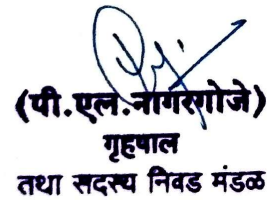 (पी.एल.नागरगोजे)
गृहपाल
तथा सदस्य निवड मंडळ